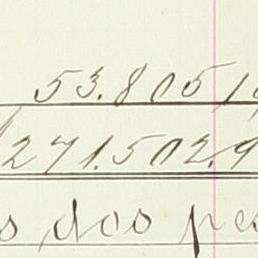 53.805 1
271.502.9
s dos pes